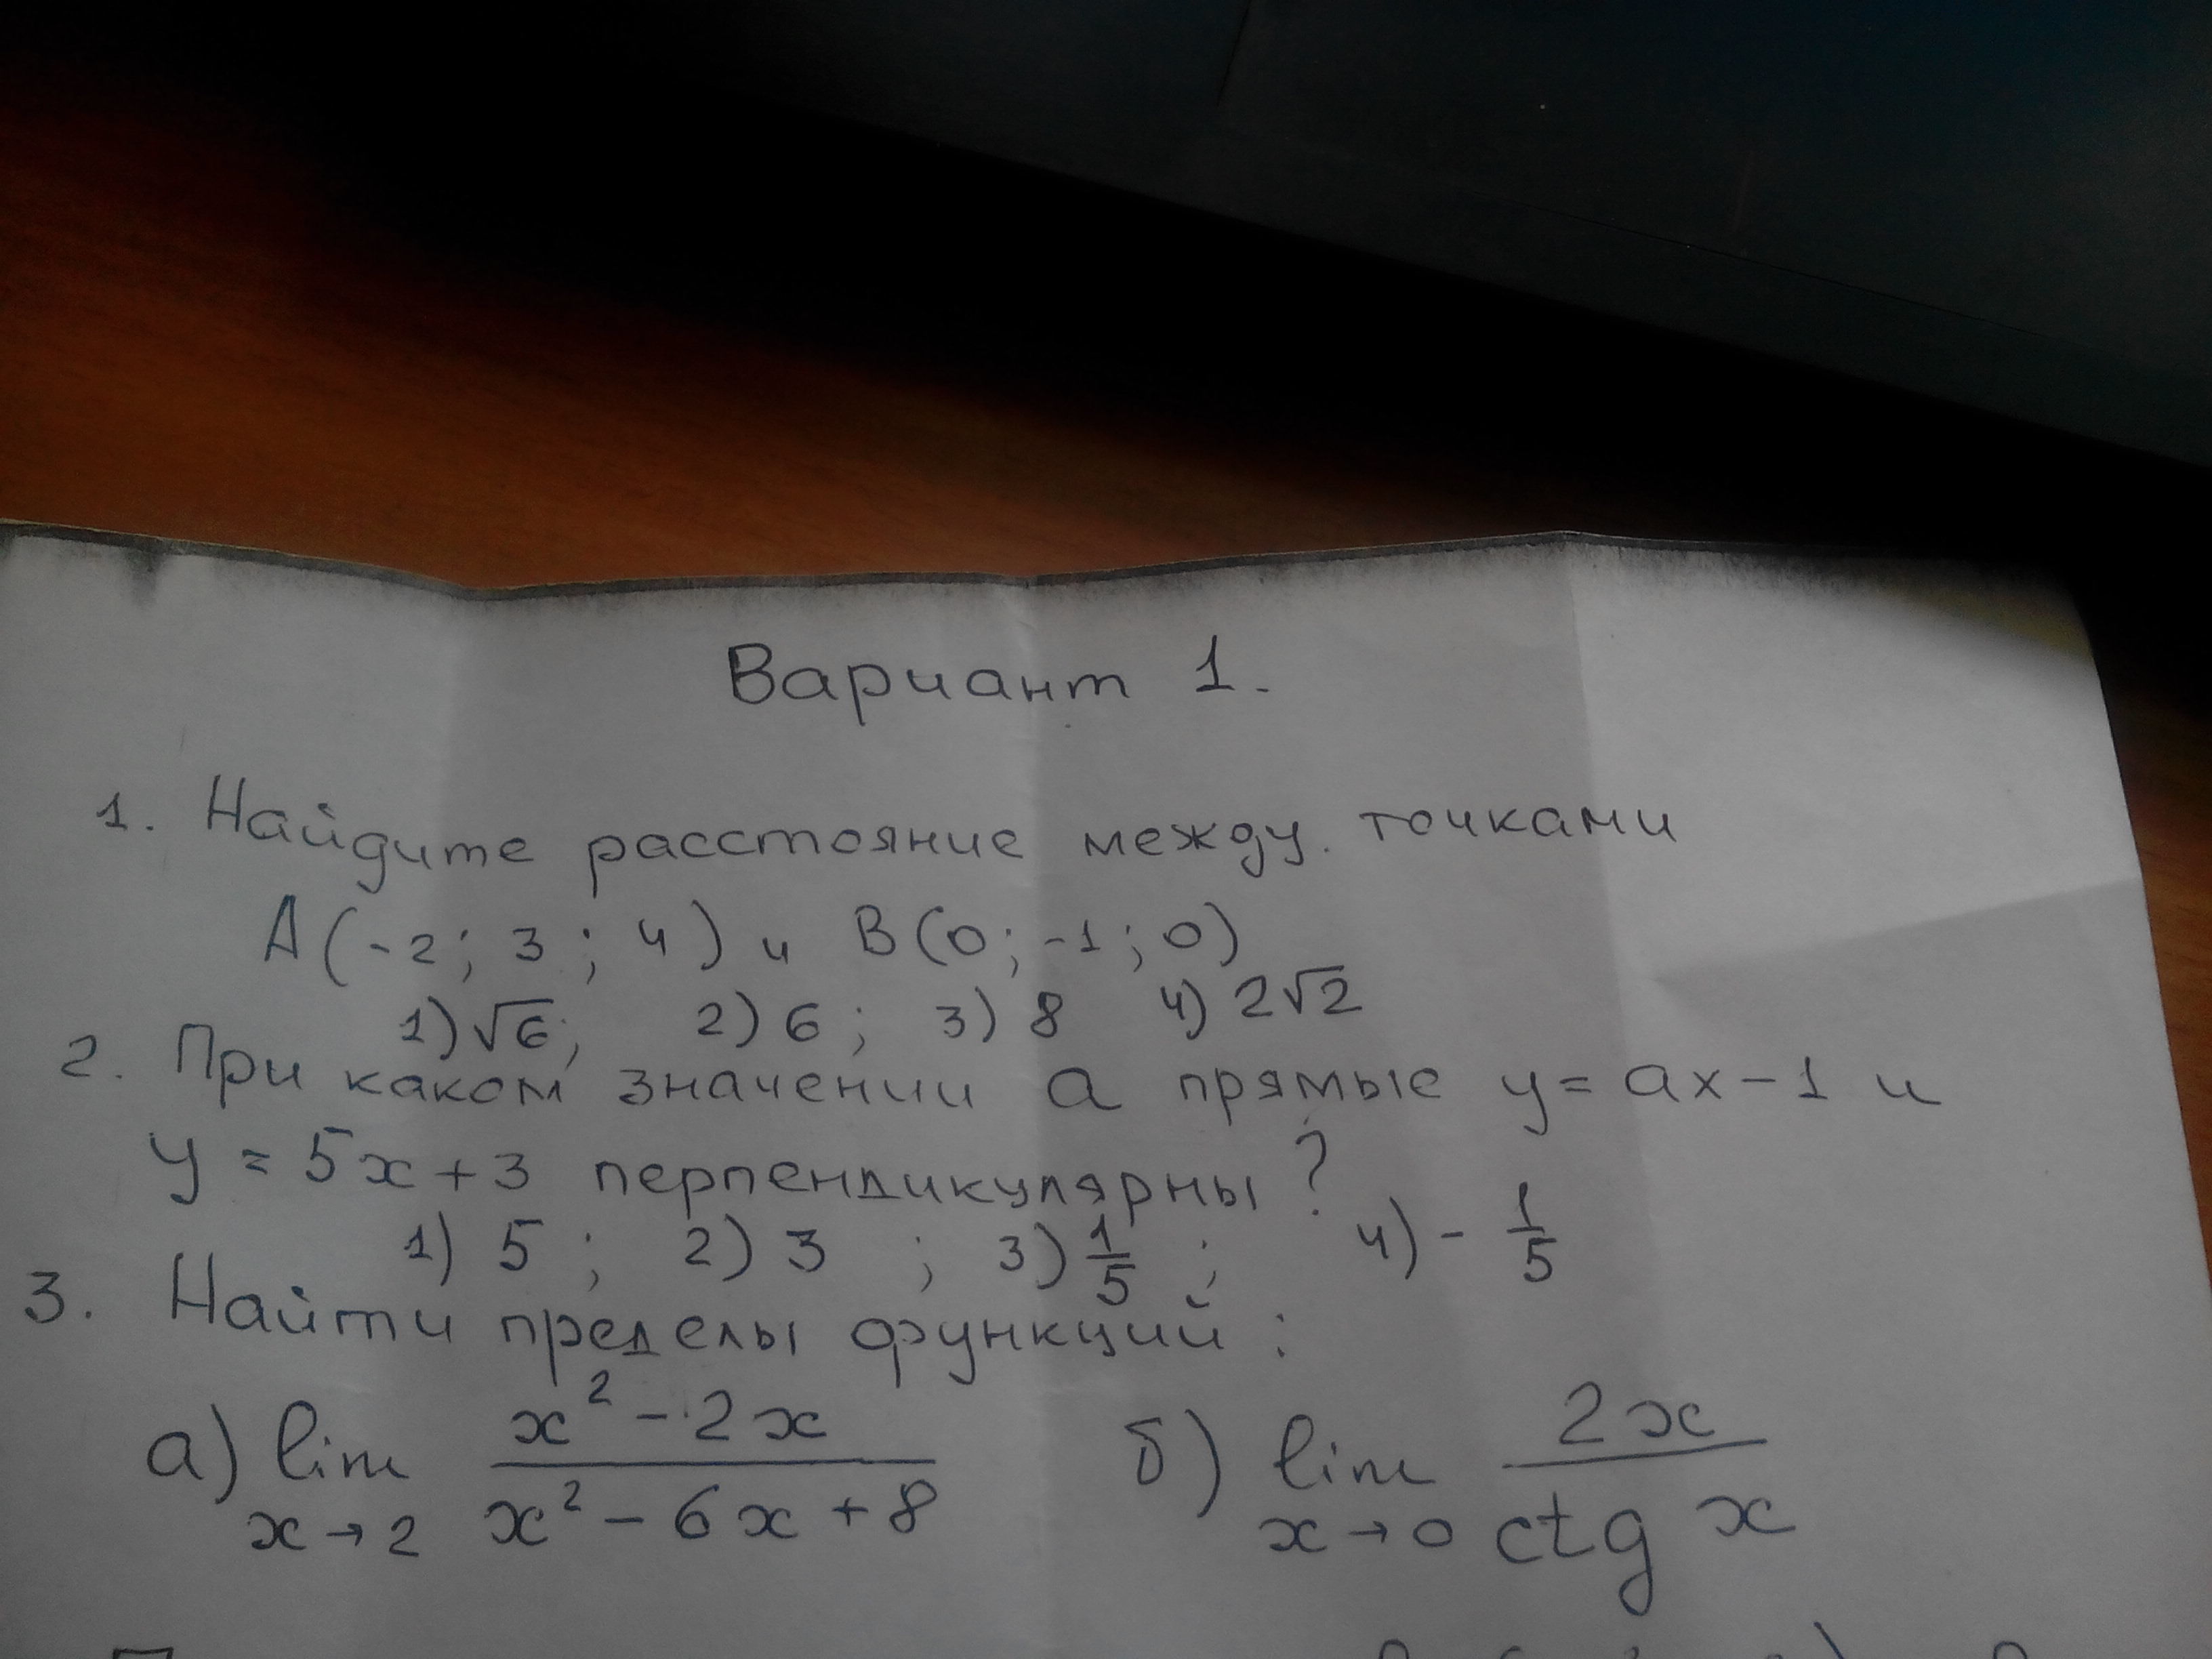 Вариант 1.
1. Найдите расстояние между точками
A(-2; 3; 4) и B(0; -1; 0)
1) √6; 2) 6; 3) 8 4) 2√2
2. При каком значении a прямые y = ax - 1 и
y = 5x + 3 перпендикулярны?
1) 5; 2) 3; 3) 1/5; 4) - 1/5
3. Найти пределы функций:
а) lim x→2 (x² - 2x)/(x² - 6x + 8) б) lim x→0 2x/ctg x